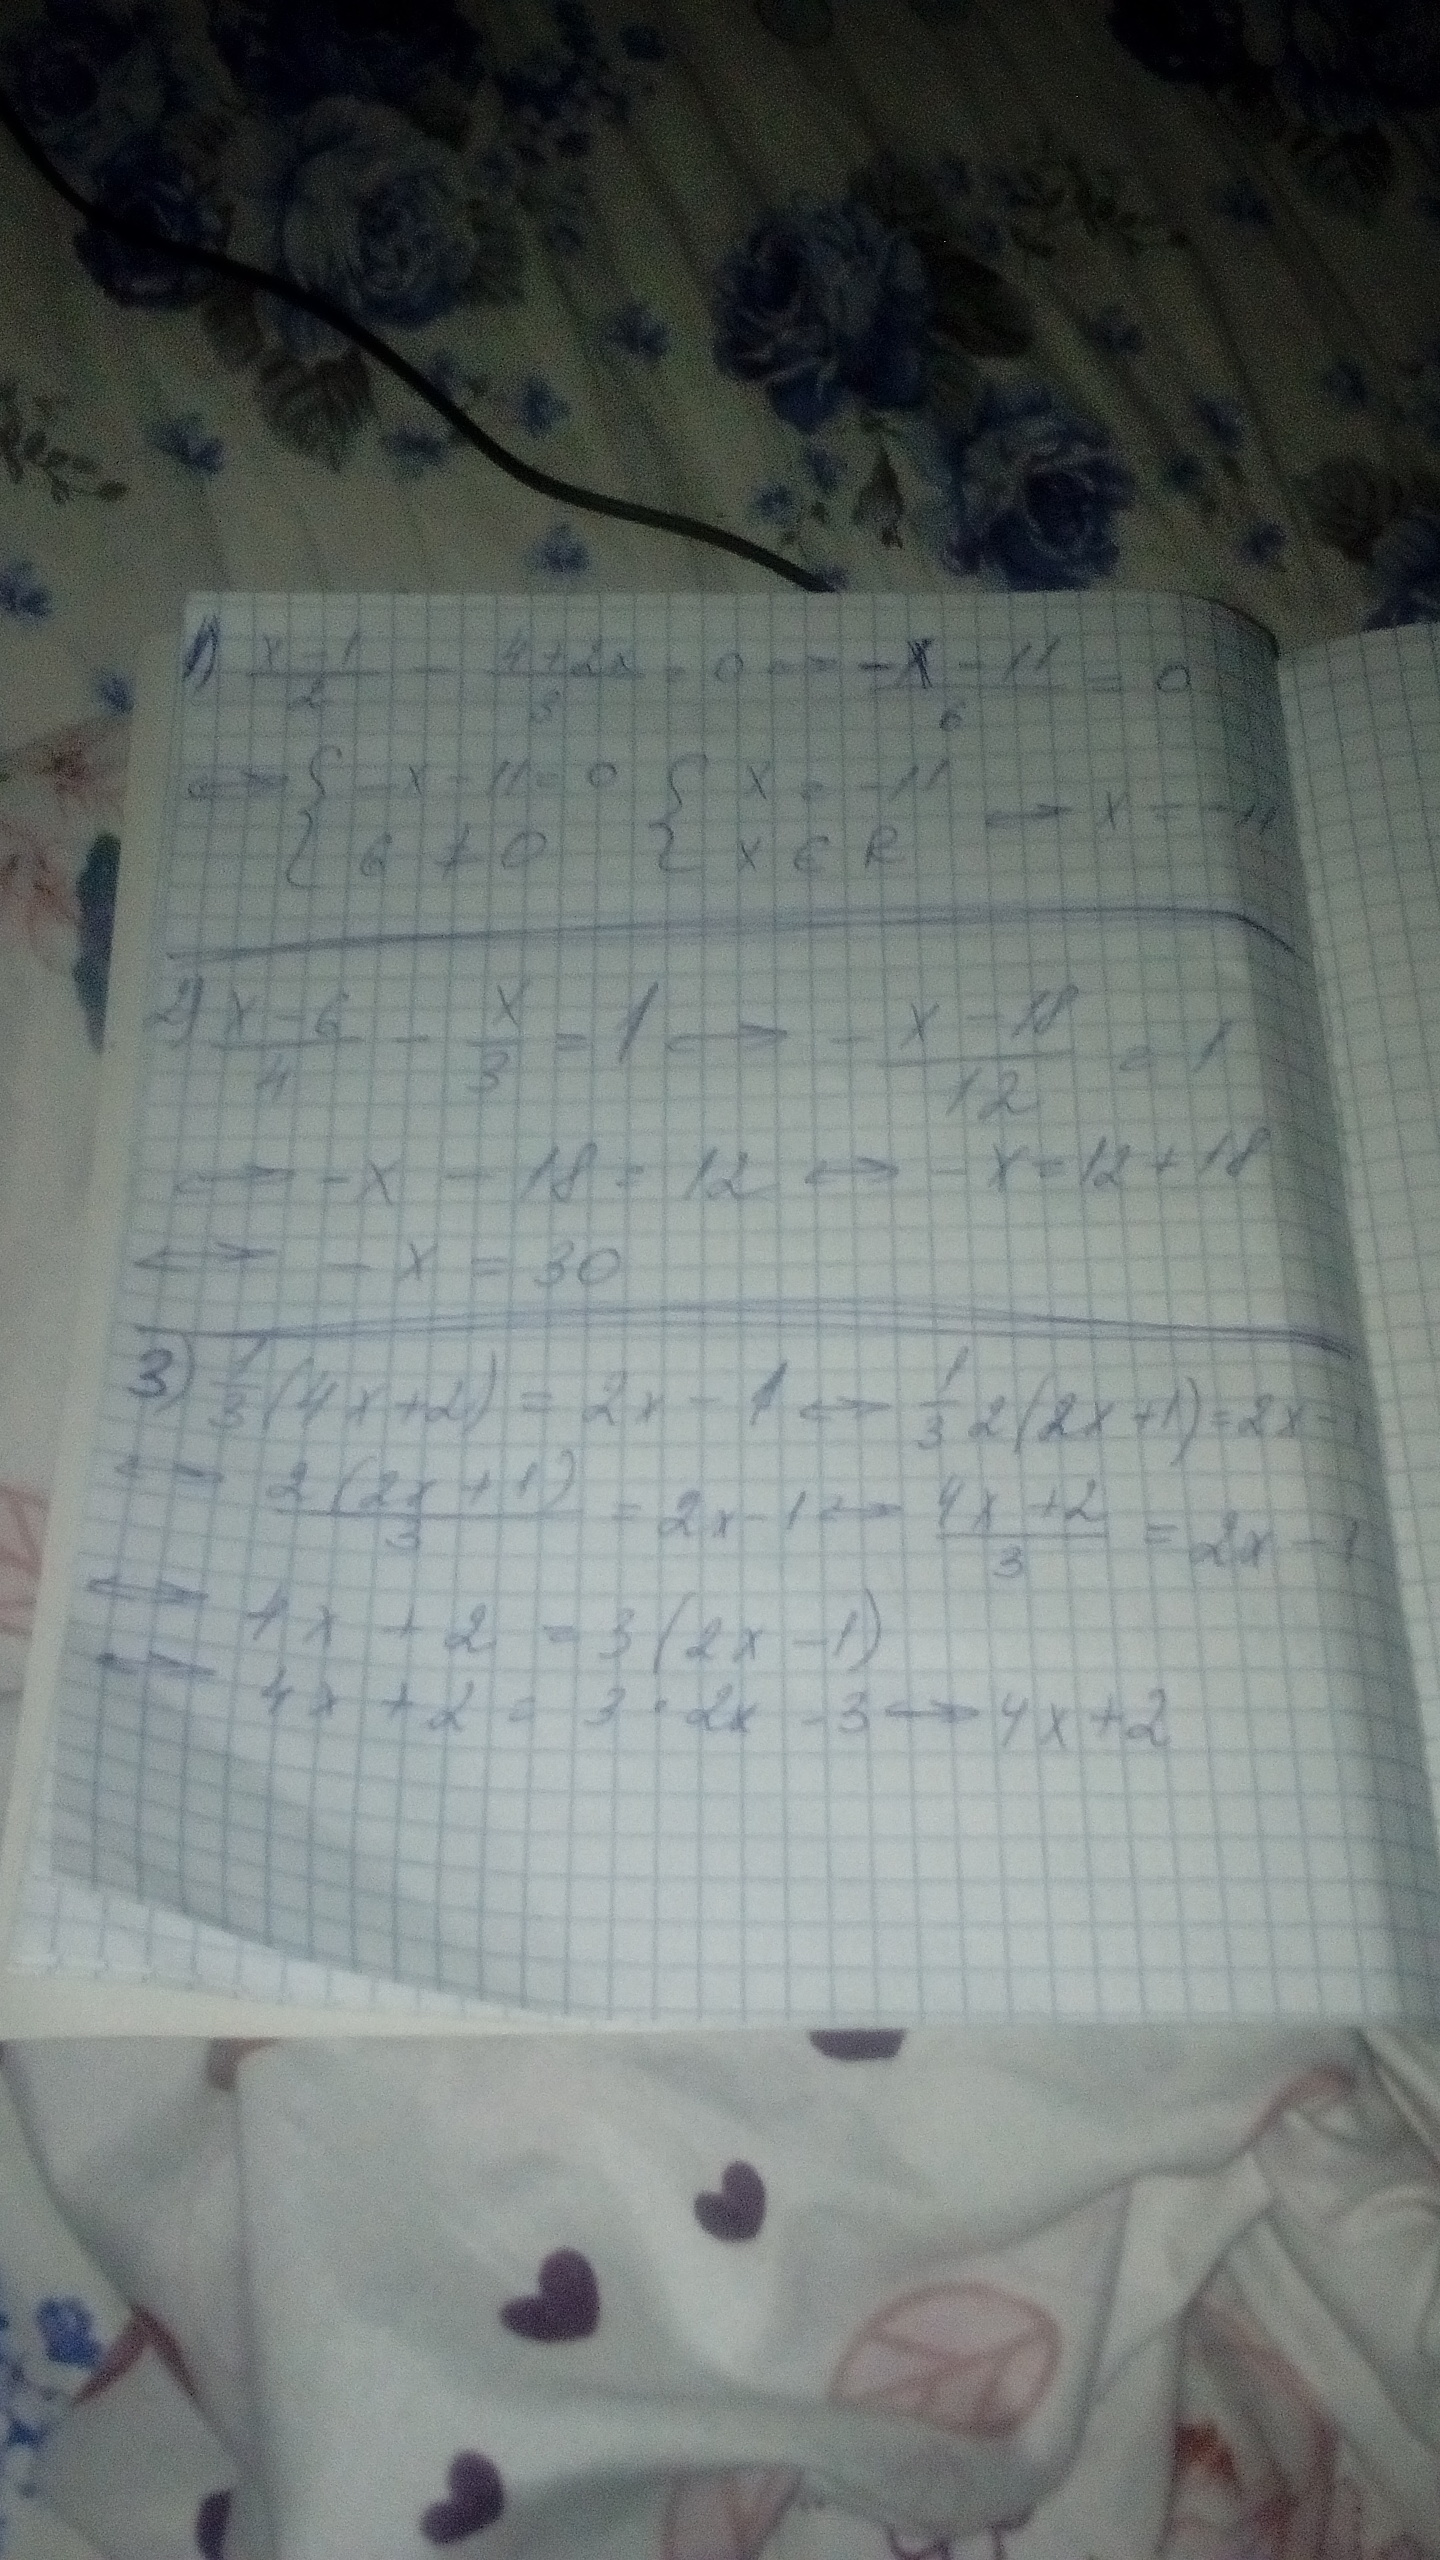 1) x-1/2 - 4+2x/3 = 0 <=> -x-11/6 = 0
<=> { -x-11=0 { x = -11 => x = -11
{ 6 ≠ 0 { x ∈ R
2) x-6/4 - x/3 = 1 <=> -x-18/12 = 1
<=> -x - 18 = 12 <=> -x=12+18
<=> -x = 30
3) 1/3 (4x+2) = 2x-1 <=> 1/3 2(2x+1)=2x-1
<=> 2(2x+1)/3 = 2x-1 <=> 4x+2/3 = 2x-1
<=> 4x + 2 = 3(2x-1)
<=> 4x+2 = 3·2x-3 <=> 4x+2